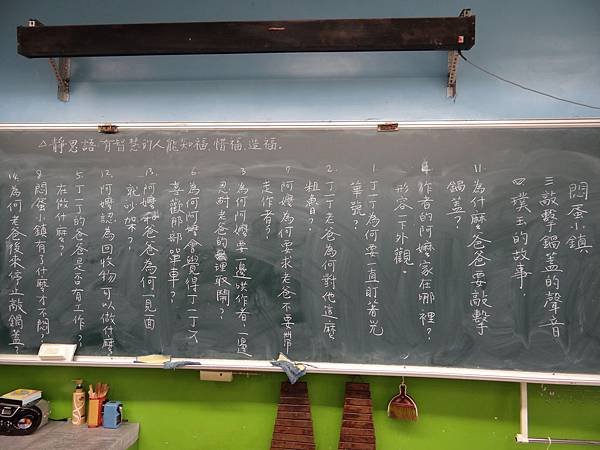 △靜思語:有智慧的人能知福、惜福、造福。
悶蛋小鎮
三敲擊鍋蓋的聲音
四璞玉的故事.
11.為什麼爸爸要敲擊
鍋蓋?
4.作者的阿嬤家在哪裡?
形容一下外觀。
1.丁丁為何要一直盯著光
筆號?
2.丁丁老爸為何對他這麼
粗魯?
7.阿嬤為何要求老爸不要帶
走作者?
3.為何阿嬤要一邊哄作者,一邊
忍耐老爸的無理取鬧?
6.為何阿嬤會覺得丁丁又
喜歡那部單車?
13.阿嬤和爸爸為何一見面
就吵架?
12.阿嬤認為回收物可以做什麼?
5.丁丁的爸爸是否有工作?
在做什麼?
8.悶蛋小鎮有了什麼才不悶?
14.為何老爸後來停止敲鍋蓋?